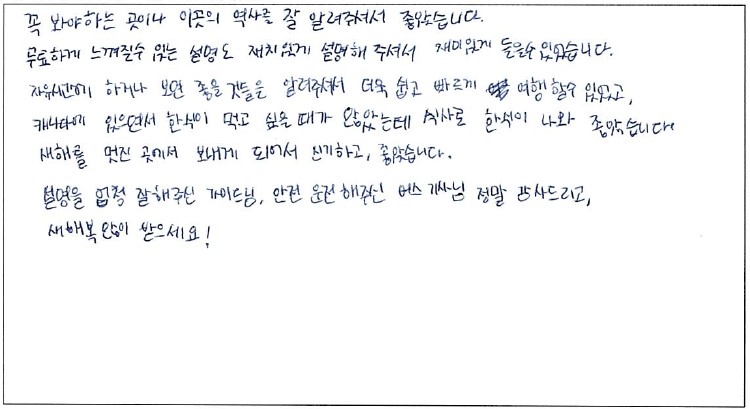 꼭 봐야하는 곳이나 이곳의 역사를 잘 알려주셔서 좋았습니다.
무료하게 느껴질수 있는 설명도 재치있게 설명해 주셔서 재미있게 들을수있었습니다.
자유시간에 하거나 보면 좋을 것들을 알려주셔서 더욱 쉽고 빠르게 여행 할수 있었고,
캐나다에 있으면서 한식이 먹고 싶을 때가 많았는데 식사로 한식이 나와 좋았습니다.
새해를 멋진 곳에서 보내게 되어서 신기하고, 좋았습니다.
설명을 엄청 잘해주신 가이드님, 안전 운전해주신 버스 기사님 정말 감사드리고,
새해복 많이 받으세요!